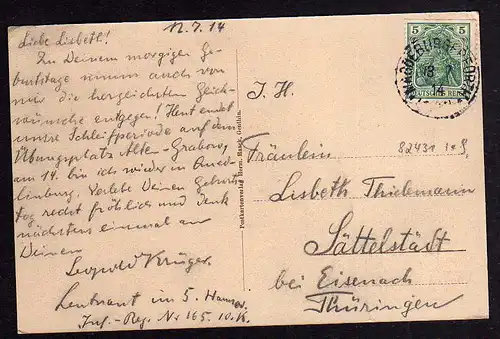 12.7.14
Liebe Lisbeth!
Zu Deinem morgigen Ge-
burtstage nimm auch von
mir die herzlichsten Glück-
wünsche entgegen! Heut endet
unsre Schleifperiode auf dem
Übungsplatz Alten-Grabow,
am 14. bin ich wieder in Qued-
linburg. Verlebe Deinen Geburts-
tag recht fröhlich und denk
nächstens einmal an
Deinen
Leopold Krüger.
Leutnant im 5. Hannov.
Inf.-Reg. Nr 165.
Postkartenverlag Herm.
5 5
DEUTSCHES REICH
14
I. H.
82431
Fräulein
Lisbeth Thielemann
Sättelstädt
bei Eisenach
Thüringen